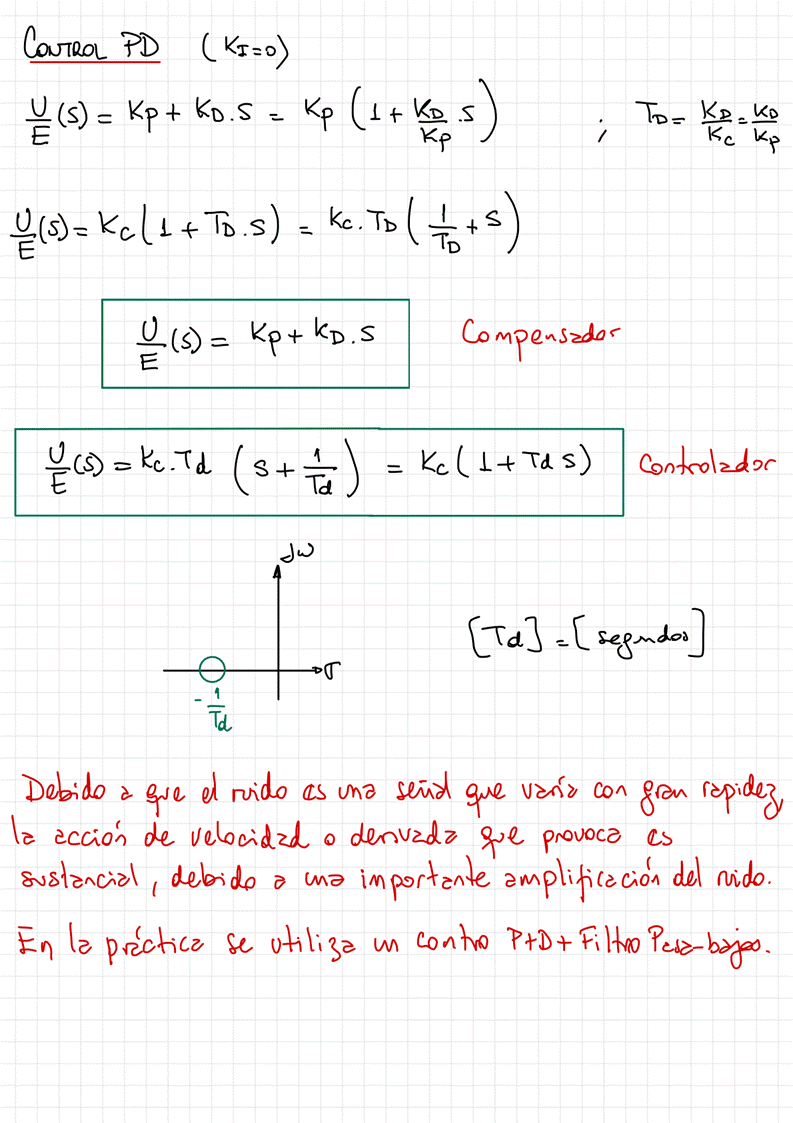 CONTROL PD (K_I=0)
U/E (s) = Kp + K_D . s = Kp (1 + K_D/Kp . s) ; T_D = K_D/K_C = K_D/Kp
U/E (s) = K_C (1 + T_D . s) = K_C . T_D (1/T_D + s)
U/E (s) = Kp + K_D . s Compensador
U/E (s) = K_C . Td (s + 1/Td) = K_C (1 + Td s) Controlador
jω
[Td] = [segundos]
σ
- 1/Td
Debido a que el ruido es una señal que varía con gran rapidez,
la acción de velocidad o derivada que provoca es
sustancial, debido a una importante amplificación del ruido.
En la práctica se utiliza un contro P+D+Filtro Pasa-bajos.